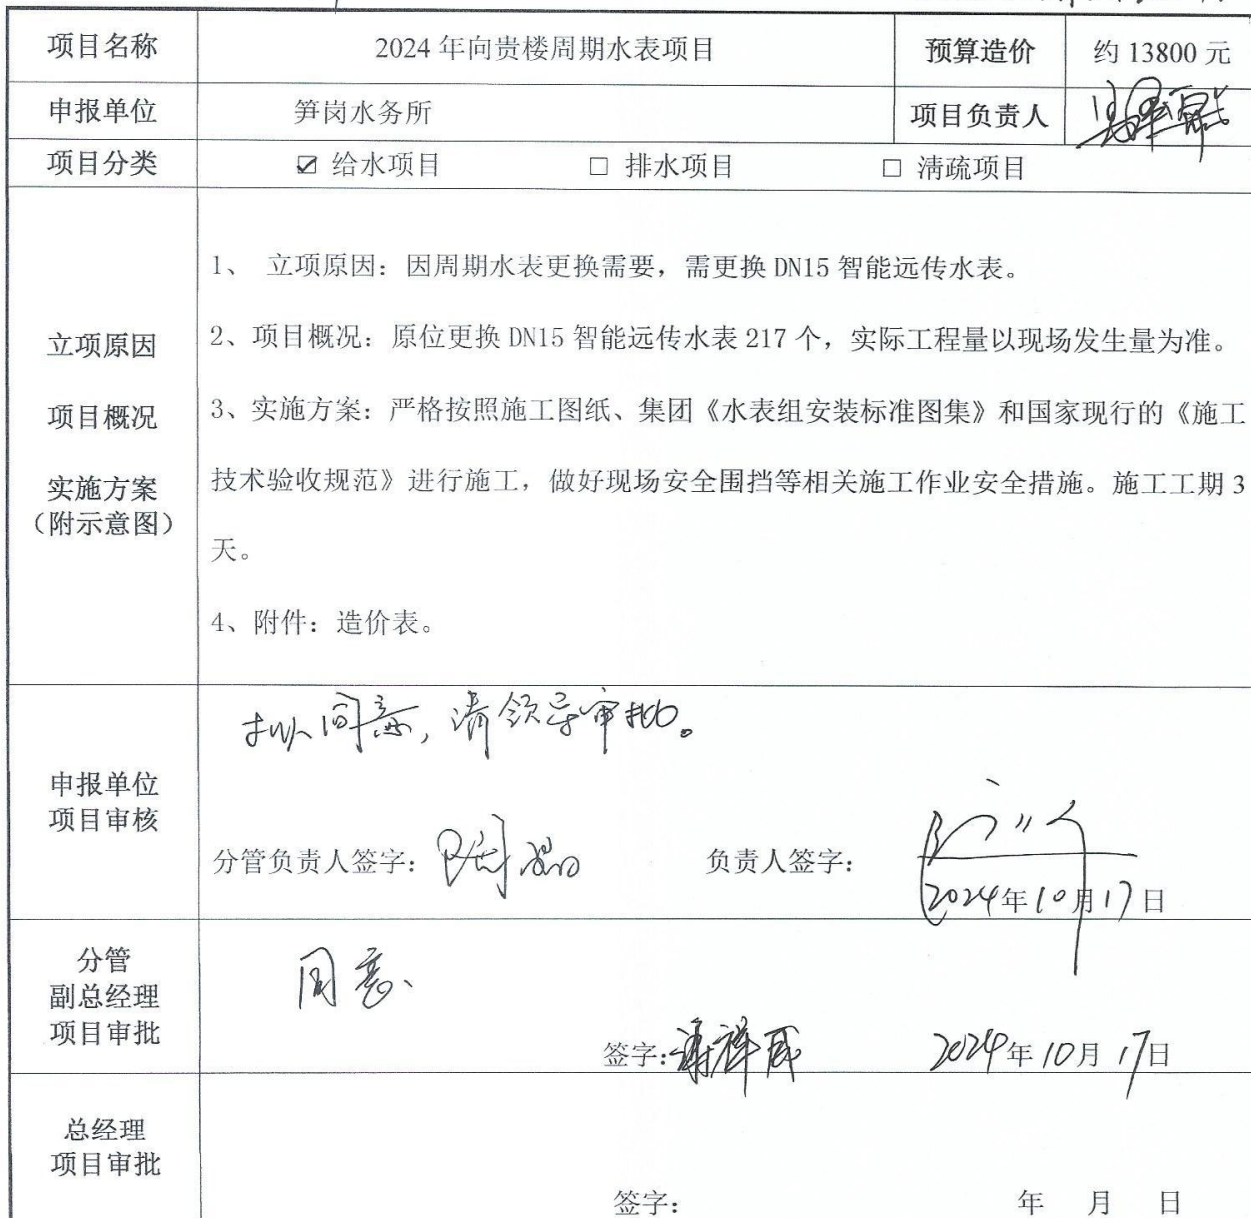 项目名称 2024年向贵楼周期水表项目 预算造价 约13800元
申报单位 笋岗水务所 项目负责人
项目分类 ☑ 给水项目 □ 排水项目 □ 清疏项目
立项原因
项目概况
实施方案
（附示意图）
1、 立项原因：因周期水表更换需要，需更换DN15智能远传水表。
2、项目概况：原位更换DN15智能远传水表217个，实际工程量以现场发生量为准。
3、实施方案：严格按照施工图纸、集团《水表组安装标准图集》和国家现行的《施工
技术验收规范》进行施工，做好现场安全围挡等相关施工作业安全措施。施工工期3
天。
4、附件：造价表。
申报单位
项目审核
拟同意，请领导审批。
分管负责人签字： 负责人签字：
2024年10月17日
分管
副总经理
项目审批
同意、
签字： 2024年10月17日
总经理
项目审批
签字： 年 月 日